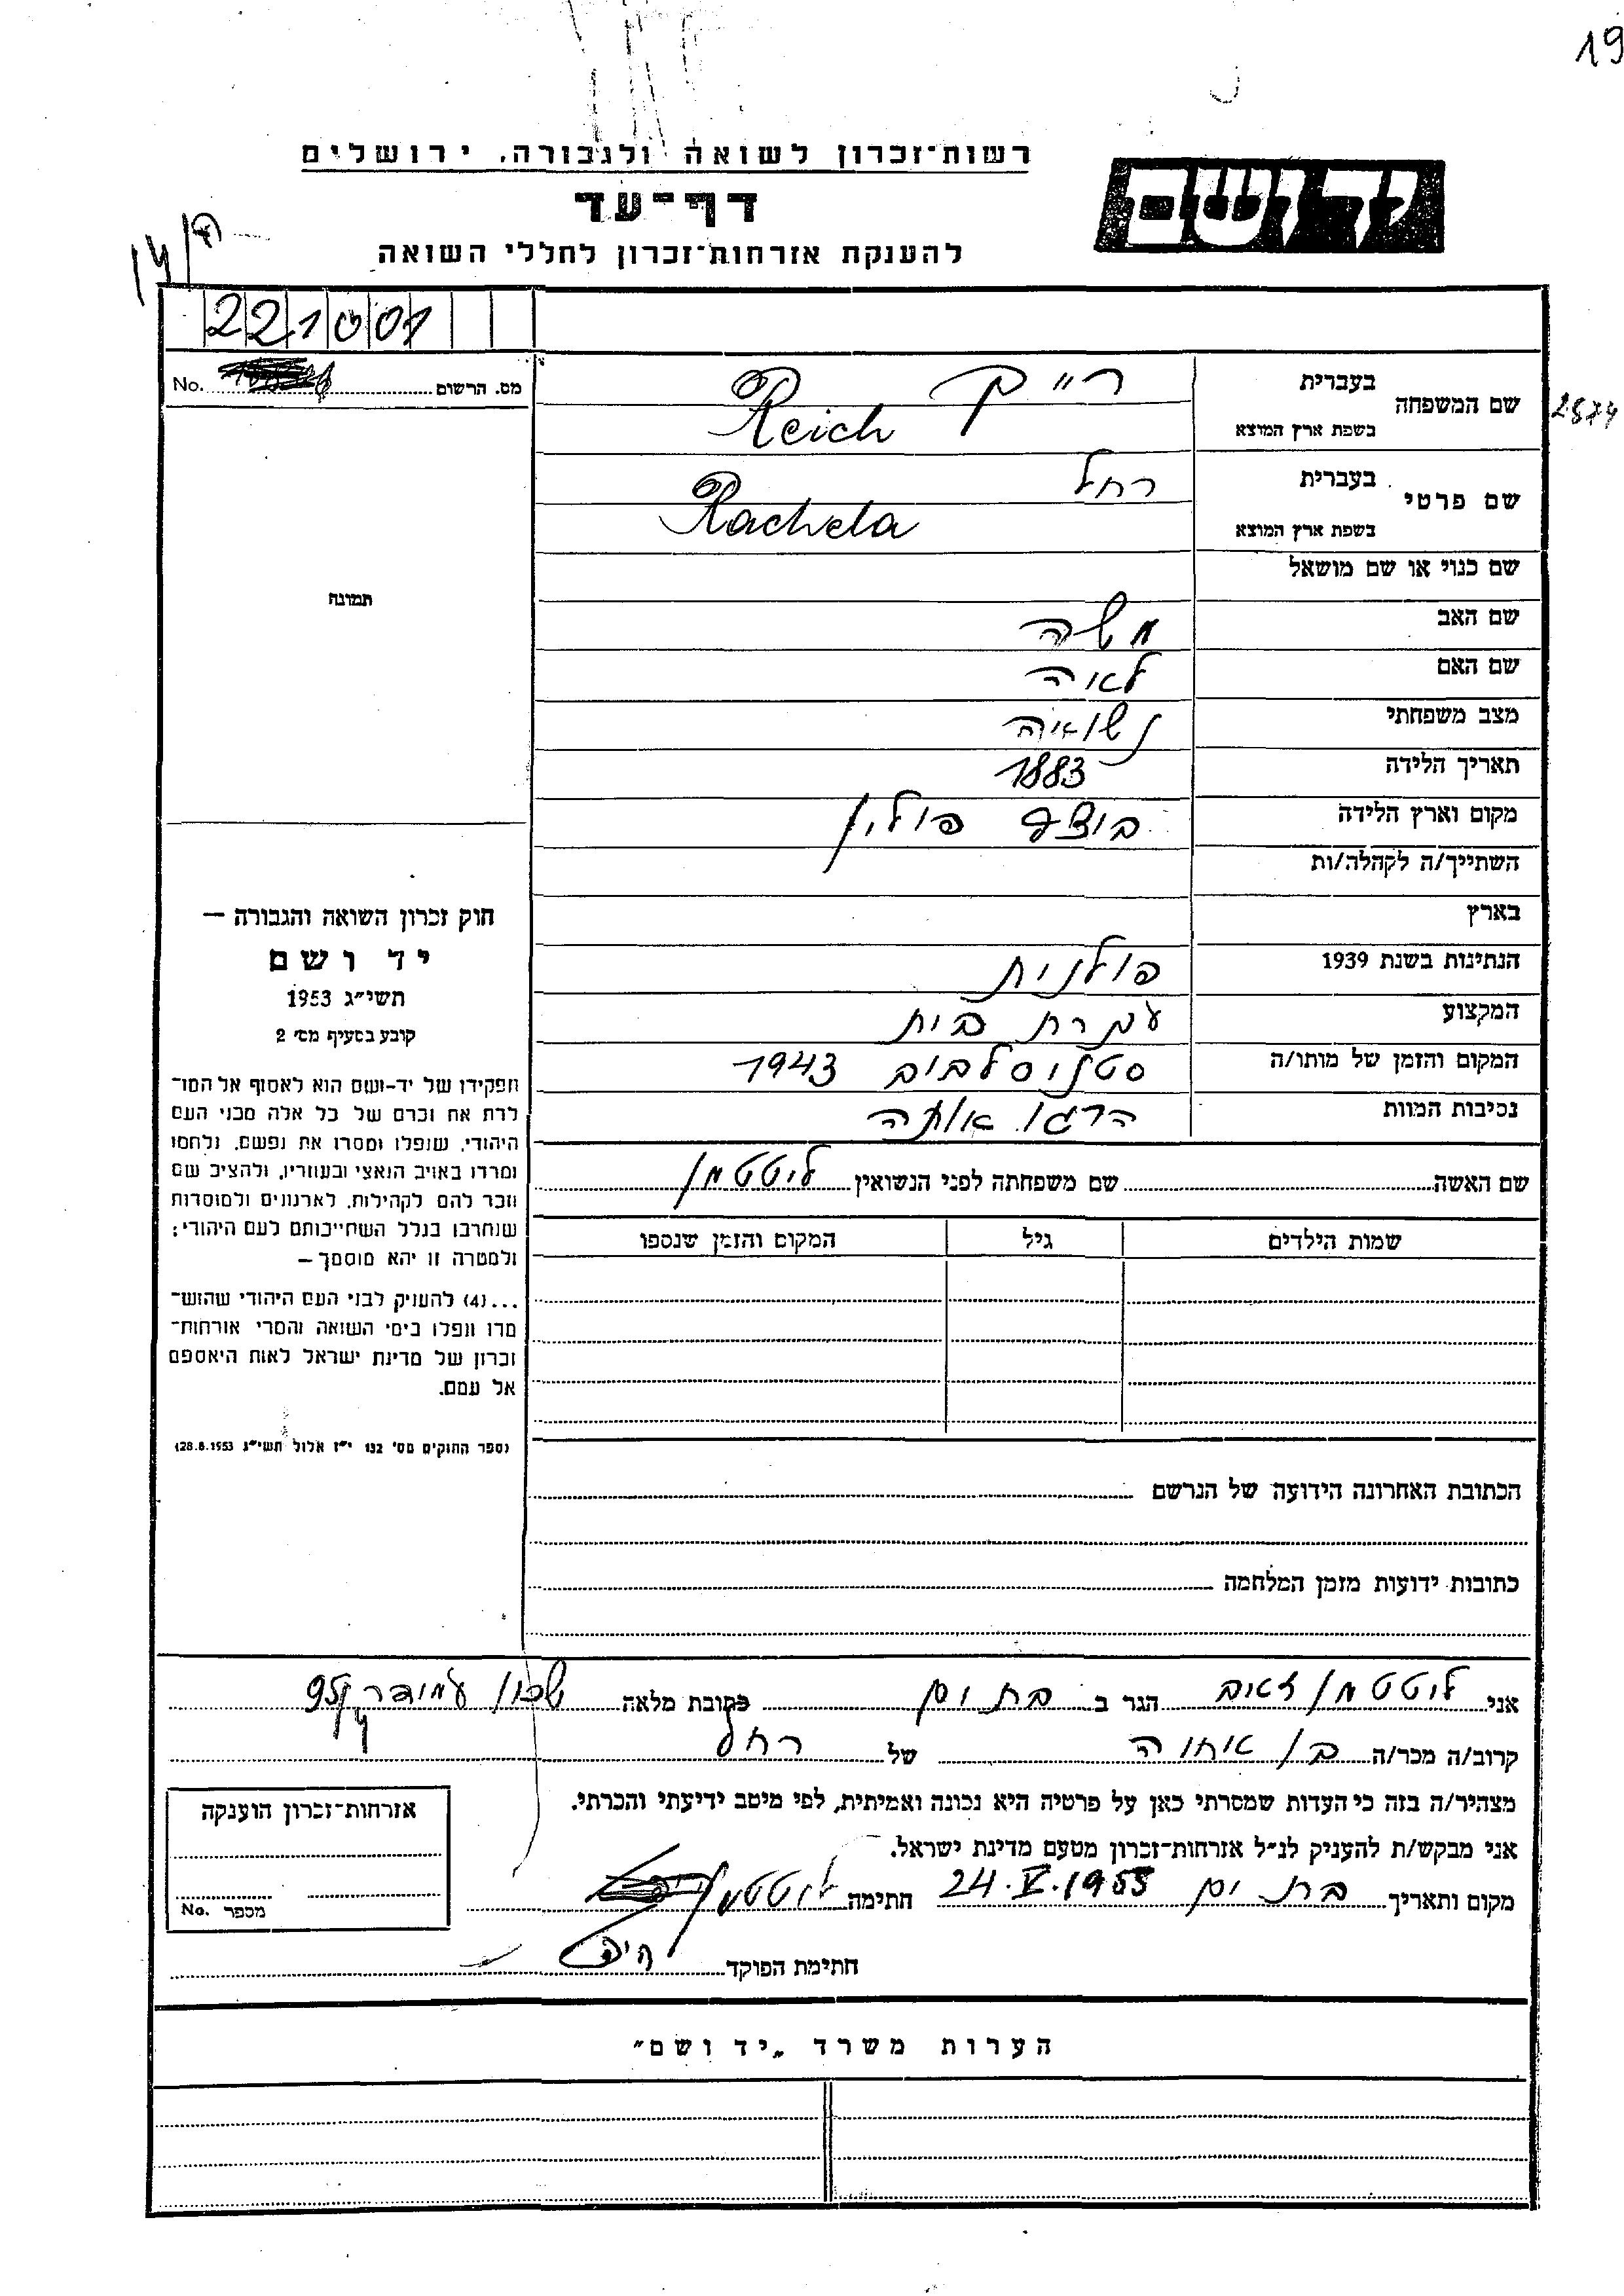 19
רשות־זכרון לשואה ולגבורה, ירושלים
יד ושם
דף־עד
להענקת אזרחות־זכרון לחללי השואה
221001
מס. הרשום No.
2874
שם המשפחה
בעברית רייך
בשפת ארץ המוצא Reich
שם פרטי
בעברית רחל
בשפת ארץ המוצא Rachela
שם כנוי או שם מושאל
שם האב משה
שם האם לאה
מצב משפחתי נשואה
תאריך הלידה 1883
מקום וארץ הלידה פולין
השתייך/ה לקהלה/ות
בארץ
הנתינות בשנת 1939 פולנית
המקצוע עקרת בית
המקום והזמן של מותו/ה סטניסלבוב 1943
נסיבות המוות הרגו אותה
שם האשה שם משפחתה לפני הנשואין ליטטמן
שמות הילדים גיל המקום והזמן שנספו
הכתובת האחרונה הידועה של הנרשם
כתובות ידועות מזמן המלחמה
תמונה
חוק זכרון השואה והגבורה —
יד ושם
תשי״ג 1953
קובע בסעיף מס׳ 2
תפקידו של יד־ושם הוא לאסוף אל המו־
לדת את זכרם של כל אלה מבני העם
היהודי, שנפלו ומסרו את נפשם, נלחמו
ומרדו באויב הנאצי ובעוזריו, ולהציב שם
וזכר להם לקהילות, לארגונים ולמוסדות
שנחרבו בגלל השתייכותם לעם היהודי;
ולמטרה זו יהא מוסמך —
...(4) להעניק לבני העם היהודי שהוש־
מדו ונפלו בימי השואה והמרי אזרחות־
זכרון של מדינת ישראל לאות היאספם
אל עמם.
(ספר החוקים מס׳ 132 י״ז אלול תשי״ג 28.8.1953)
אני ליטטמן זאב הגר ב בת ים כתובת מלאה שכון עמידר 95/4
קרוב/ה מכר/ה בן אחוה של רחל
מצהיר/ה בזה כי העדות שמסרתי כאן על פרטיה היא נכונה ואמיתית, לפי מיטב ידיעתי והכרתי.
אני מבקש/ת להעניק לנ״ל אזרחות־זכרון מטעם מדינת ישראל.
מקום ותאריך בת ים 24.V.1955 חתימה ליטטמן
חתימת הפוקד
אזרחות־זכרון הוענקה
מספר No.
הערות משרד „יד ושם״